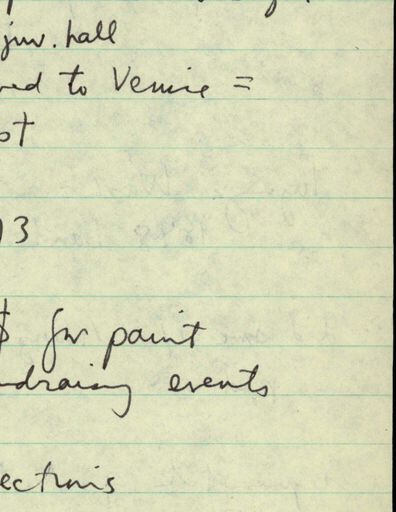 juv. hall
ved to Venice =
st
13
$ for paint
ndraising events
ections